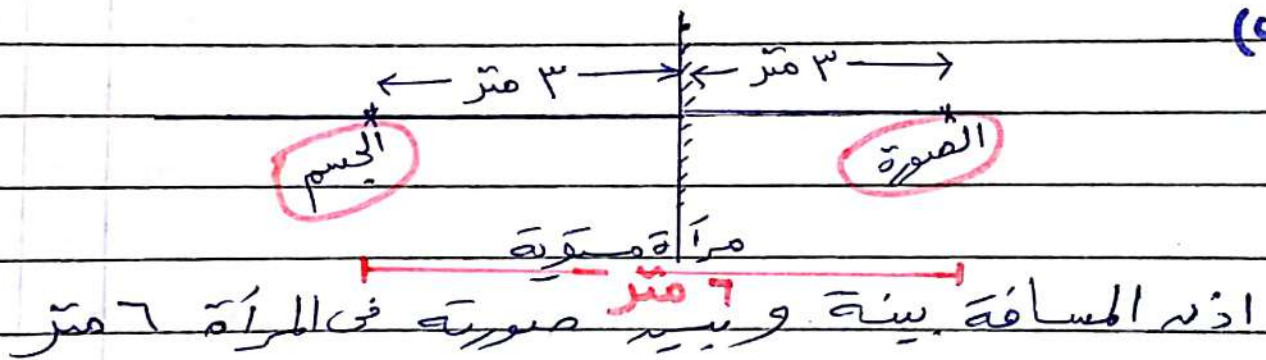 ٥)
٣ متر ٣ متر
الجسم الصورة
مرآة مستوية
٦ متر
اذن المسافة بينة و بين صورته فى المرآة ٦ متر